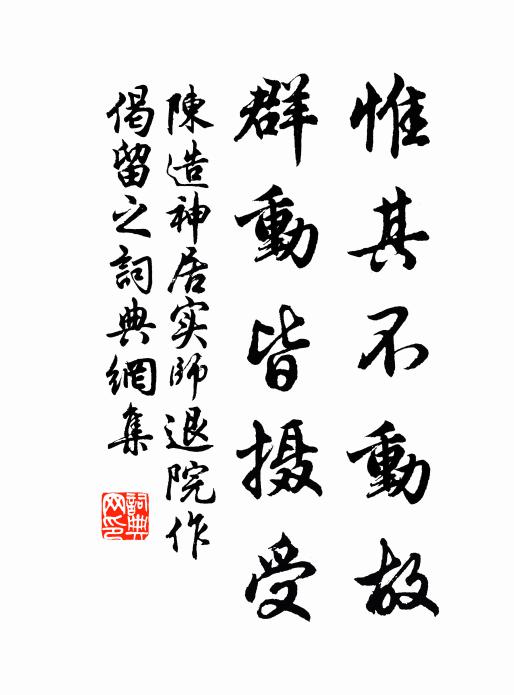 惟其不動故
群動皆摄受
陳造神居实師退院作
偈留之詞典網集
詞典网印